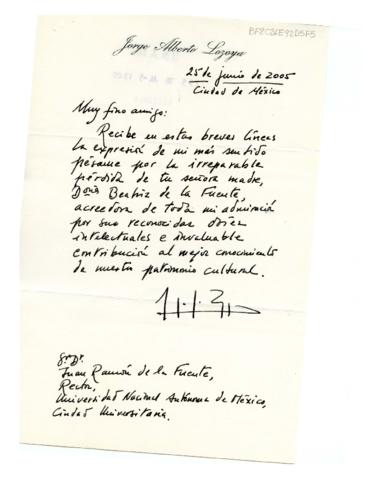 BF8C26E92D5F5
Jorge Alberto Lozoya
25 de junio de 2005
Ciudad de México
Muy fino amigo:
Recibe en estas breves líneas
la expresión de mi más sentido
pésame por la irreparable
pérdida de tu señora madre,
Doña Beatriz de la Fuente,
acreedora de toda mi admiración
por sus reconocidas dotes
intelectuales e invaluable
contribución al mejor conocimiento
de nuestro patrimonio cultural.
Sr. Dr.
Juan Ramón de la Fuente,
Rector,
Universidad Nacional Autónoma de México,
Ciudad Universitaria.